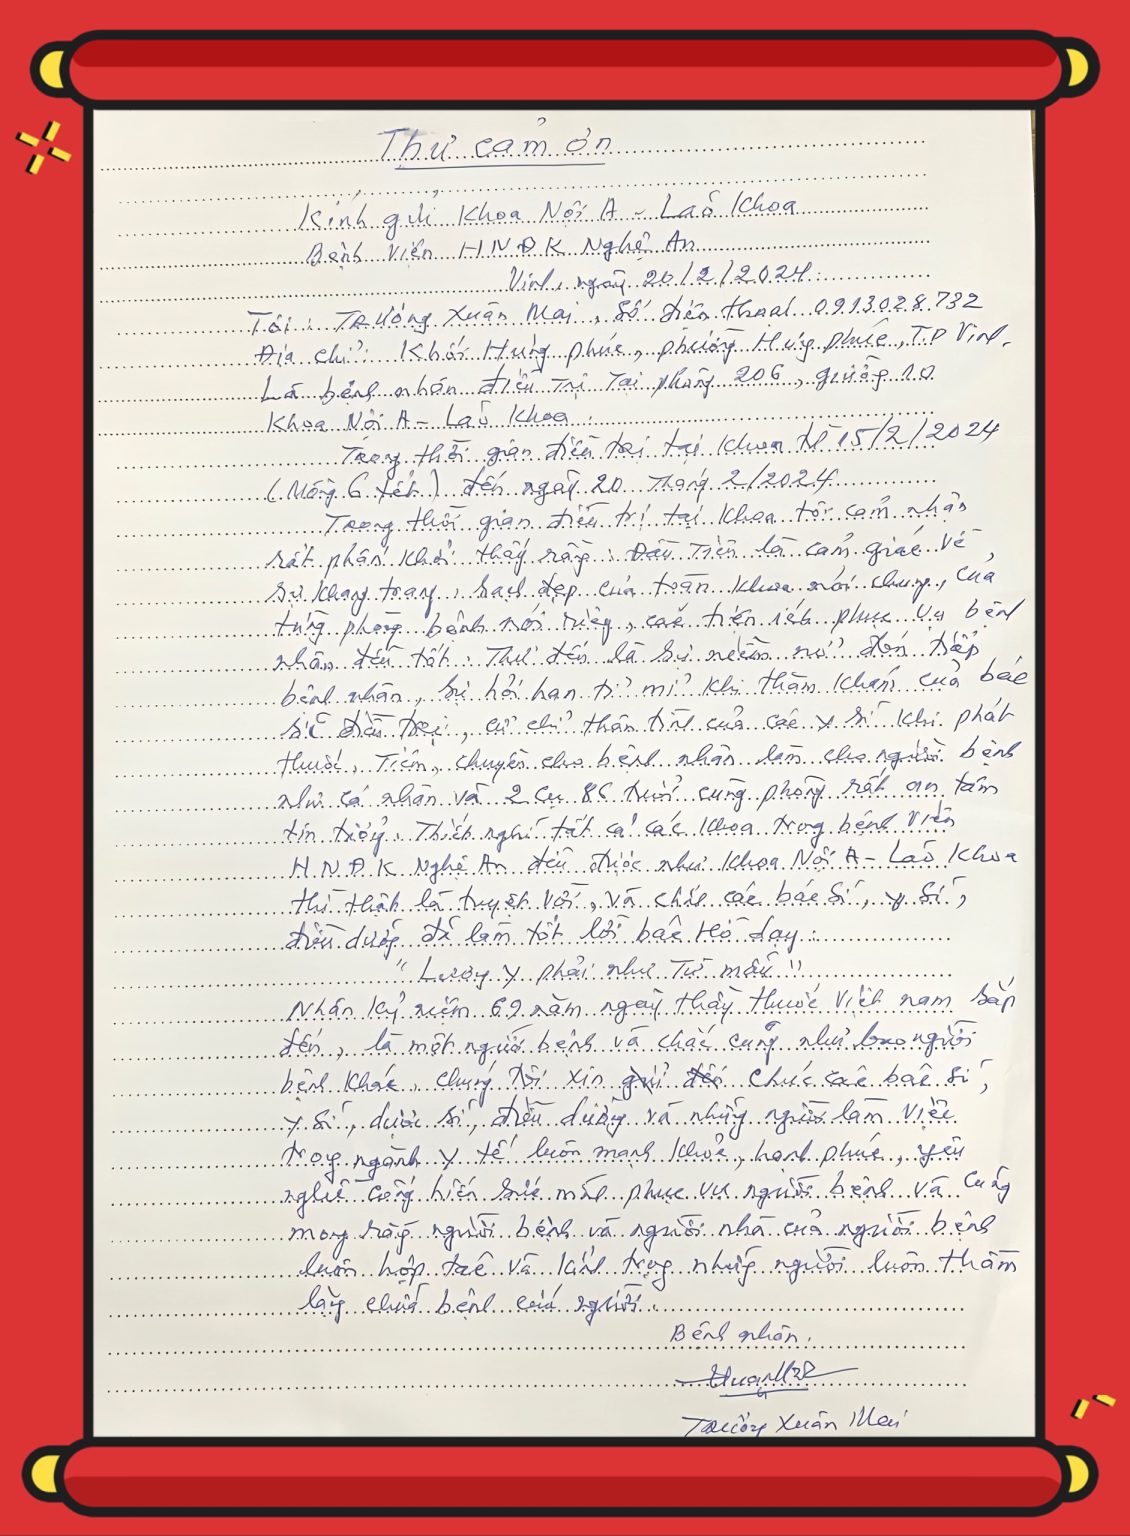 Thư cảm ơn
Kính gửi Khoa Nội A - Lão Khoa
Bệnh viện HNĐK Nghệ An
Vinh, ngày 20/2/2024.
Tôi: Trương Xuân Mai, số điện thoại 0913028732
Địa chỉ: Khối Hưng phúc, phường Hưng phúc, TP Vinh.
Là bệnh nhân điều trị tại phòng 206, giường 10
Khoa Nội A - Lão Khoa.
Trong thời gian điều trị tại Khoa từ 15/2/2024
(Mồng 6 tết) đến ngày 20 Tháng 2/2024
Trong thời gian điều trị tại Khoa tôi cảm nhận
rất phấn khởi thấy rằng: Đầu Tiên là cảm giác về
sự khang trang, sạch đẹp của toàn khoa nói chung, của
từng phòng bệnh nói riêng, các tiện ích phục vụ bệnh
nhân đều tốt. Thứ đến là sự niềm nở đón tiếp
bệnh nhân, sự hỏi han tỉ mỉ khi thăm khám của bác
sĩ điều trị, cử chỉ thân tình của các y sĩ khi phát
thuốc, Tiêm, chuyền cho bệnh nhân làm cho người bệnh
như cá nhân và 2 cụ 86 tuổi cùng phòng rất an tâm
tin tưởng. Thiết nghĩ tất cả các khoa trong bệnh viện
HNĐK Nghệ An đều được như Khoa Nội A - Lão Khoa
thì thật là tuyệt vời, và chắc các bác sĩ, y sĩ,
điều dưỡng đã làm tốt lời bác Hồ dạy:
"Lương y phải như Từ mẫu"
Nhân kỷ niệm 69 năm ngày thầy thuốc Việt nam sắp
đến, là một người bệnh và chắc cũng như bao người
bệnh khác, chúng tôi xin gửi đến chúc các bác sĩ,
y sĩ, dược sĩ, điều dưỡng và những người làm việc
trong ngành y tế luôn mạnh khỏe, hạnh phúc, yêu
nghề cống hiến sức mình phục vụ người bệnh và cũng
mong rằng người bệnh và người nhà của người bệnh
luôn hợp tác và kính trọng những người luôn thầm
lặng chữa bệnh cứu người.
Bệnh nhân.
Trương Xuân Mai